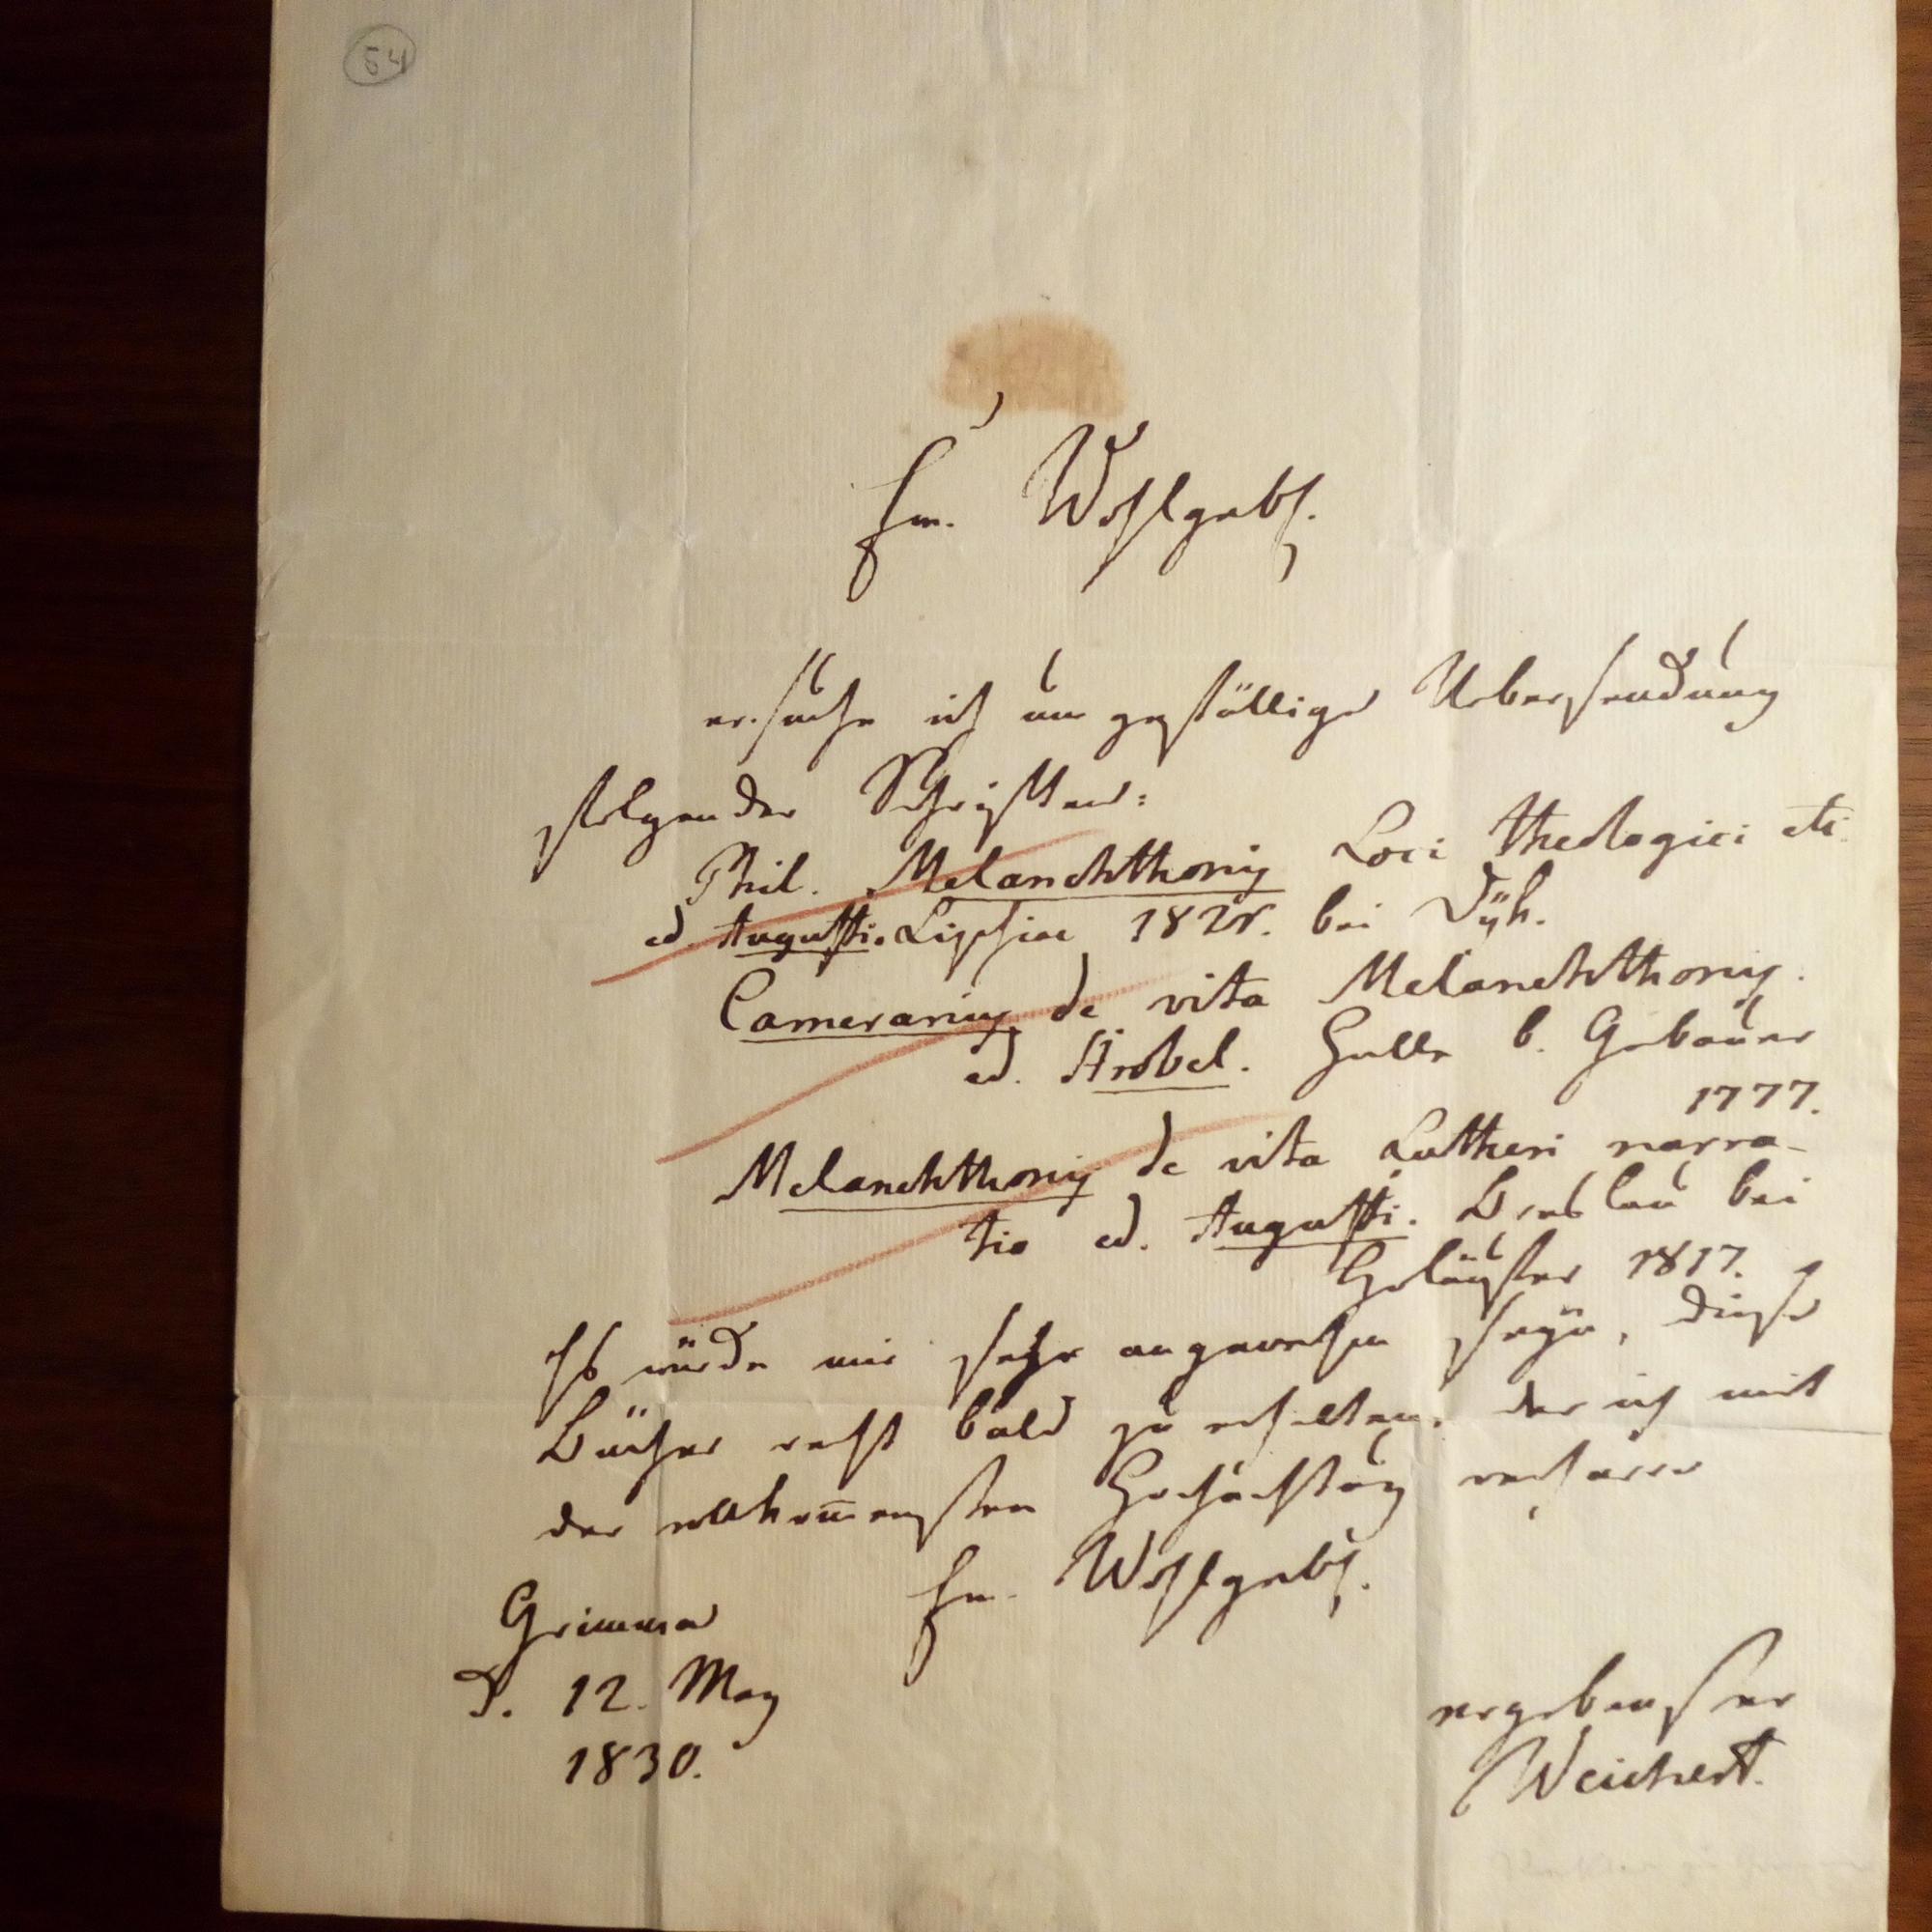 54
Ew. Wohlgebh.
ersuche ich um gefällige Uebersendung
folgender Schriften:
Phil. Melanchthonis Loci theologici etc.
ed. Augusti. Lipsiae 182. bei Dÿk.
Camerarius de vita Melanchthonis.
ed. Strobel. Halle b. Gebauer
1777.
Melanchthonis de vita Lutheri narra-
tio ed. Augusti. Breslau bei
Holäufer 1817.
Es würde mir sehr angenehm seÿn, diese
Bücher recht bald zu erhalten, der ich mit
der vollkom̄ensten Hochachtung verharre
Ew. Wohlgebh.
Grimma
d. 12. May
1830.
ergebenster
Weichert.